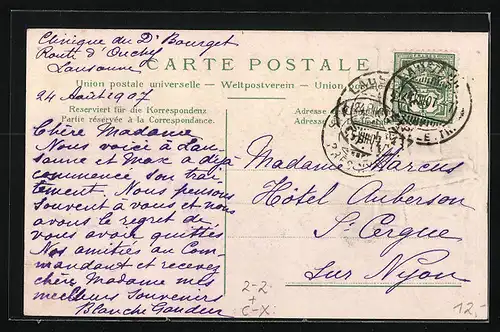 Clinique du Dr Bourget
Route d'Ouchy
Lausanne
24 Août 1907
CARTE POSTALE
Union postale universelle. – Weltpostverein – Union po
Reserviert für die Korrespondenz
Partie réservée à la Correspondance.
Adresse
Adresse
Chère Madame
Nous voici à Lau-
sanne et Max a déjà
commencé son trai-
tement. Nous pensons
souvent à vous et nous
avons le regret de
vous avoir quittés
Nos amitiés au Com-
mandant et recevez
chère Madame mes
meilleurs souvenirs
Blanche
Madame Marcus
Hôtel Auberson
St Cergue
sur Nyon
2-2
+
C-X:
12,-